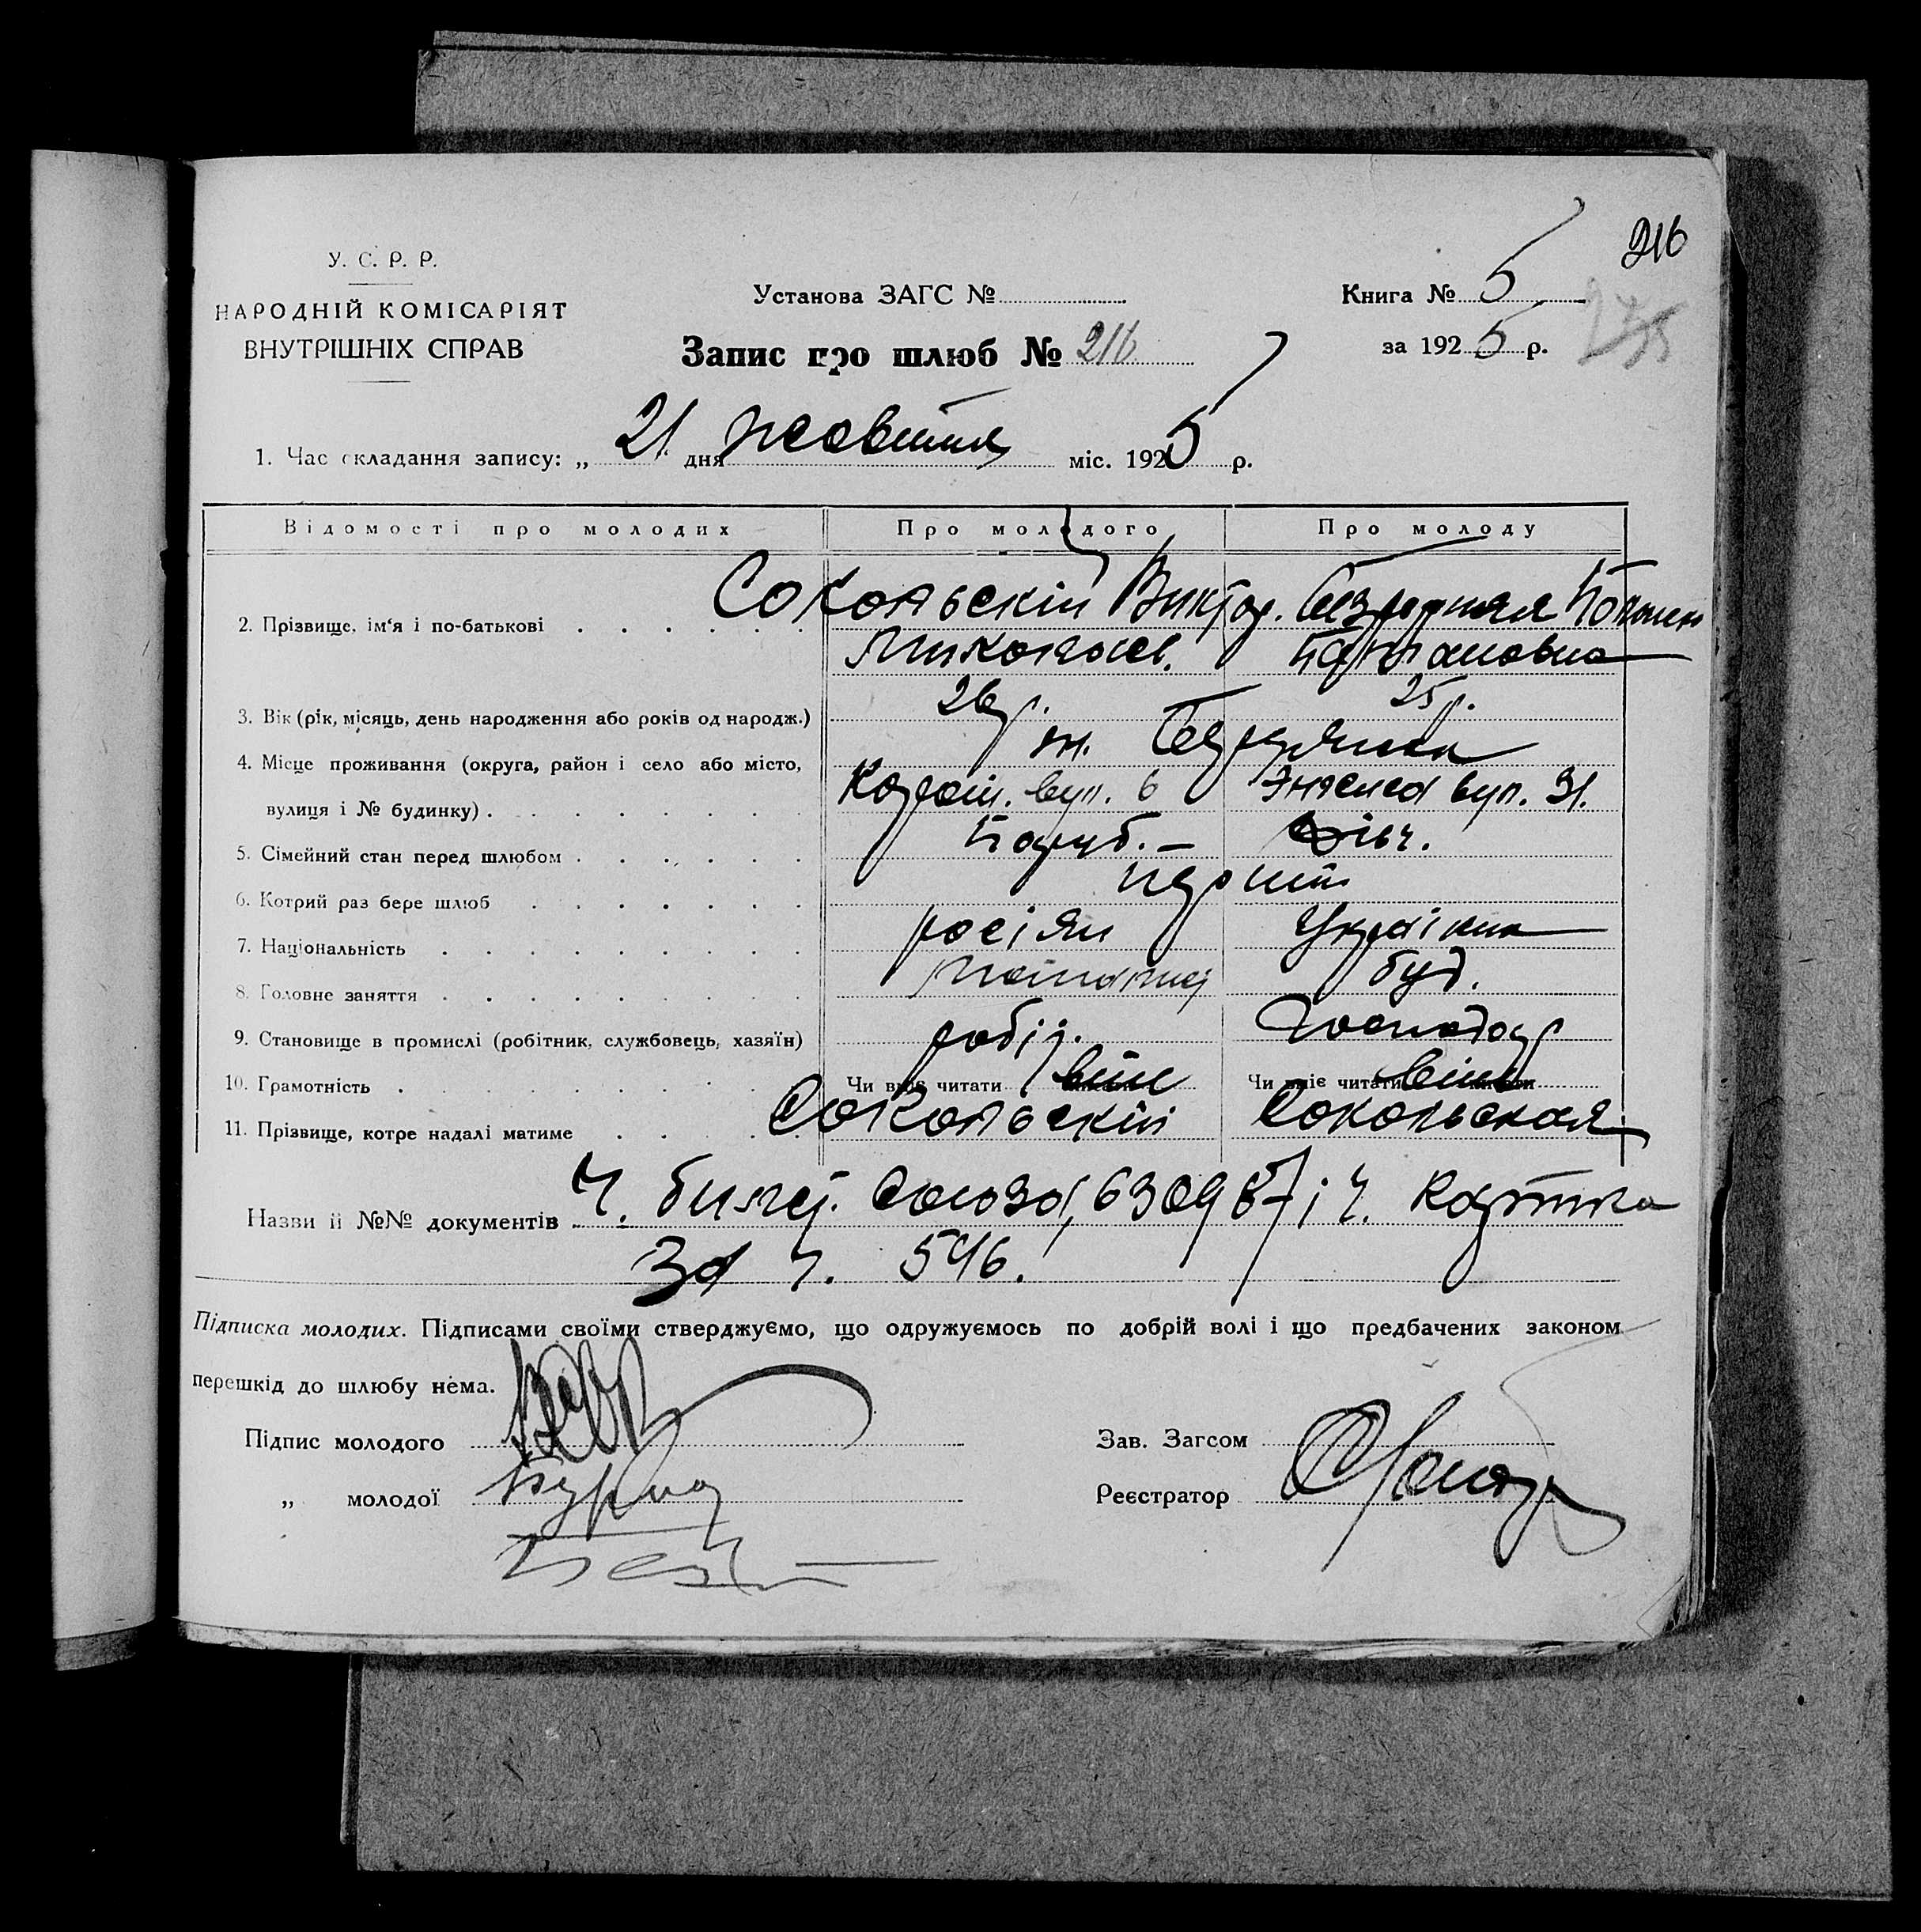 216
У. С. Р. Р.
НАРОДНІЙ КОМІСАРІЯТ
ВНУТРІШНІХ СПРАВ
Установа ЗАГС №
Запис про шлюб № 216
Книга № 5
за 1925 р.
1. Час складання запису: „ 21 дня жовтня міс. 1925 р.
Відомості про молодих Про молодого Про молоду
2. Прізвище, ім'я і по-батькові Сокольскій Виктор.
Миколаєв.
3. Вік (рік, місяць, день народження або років од народж.) 26 р. 25 р.
4. Місце проживання (округа, район і село або місто, м.
вулиця і № будинку) вул. 6 Энгелса вул. 31.
5. Сімейний стан перед шлюбом Паруб. — Дівч.
6. Котрий раз бере шлюб перший
7. Національність росіян Українка
8. Головне заняття буд.
9. Становище в промислі (робітник, службовець, хазяїн) робіт. господар
10. Грамотність Чи вміє читати вміє Чи вміє читати вміє
11. Прізвище, котре надалі матиме Сокольскій Сокольская
Назви й №№ документів Ч. билет. Союза, 630987 і Ч. Картка
За ч. 546.
Підписка молодих. Підписами своїми стверджуємо, що одружуємось по добрій волі і що предбачених законом
перешкід до шлюбу нема.
Підпис молодого
„ молодої
Зав. Загсом
Реєстратор